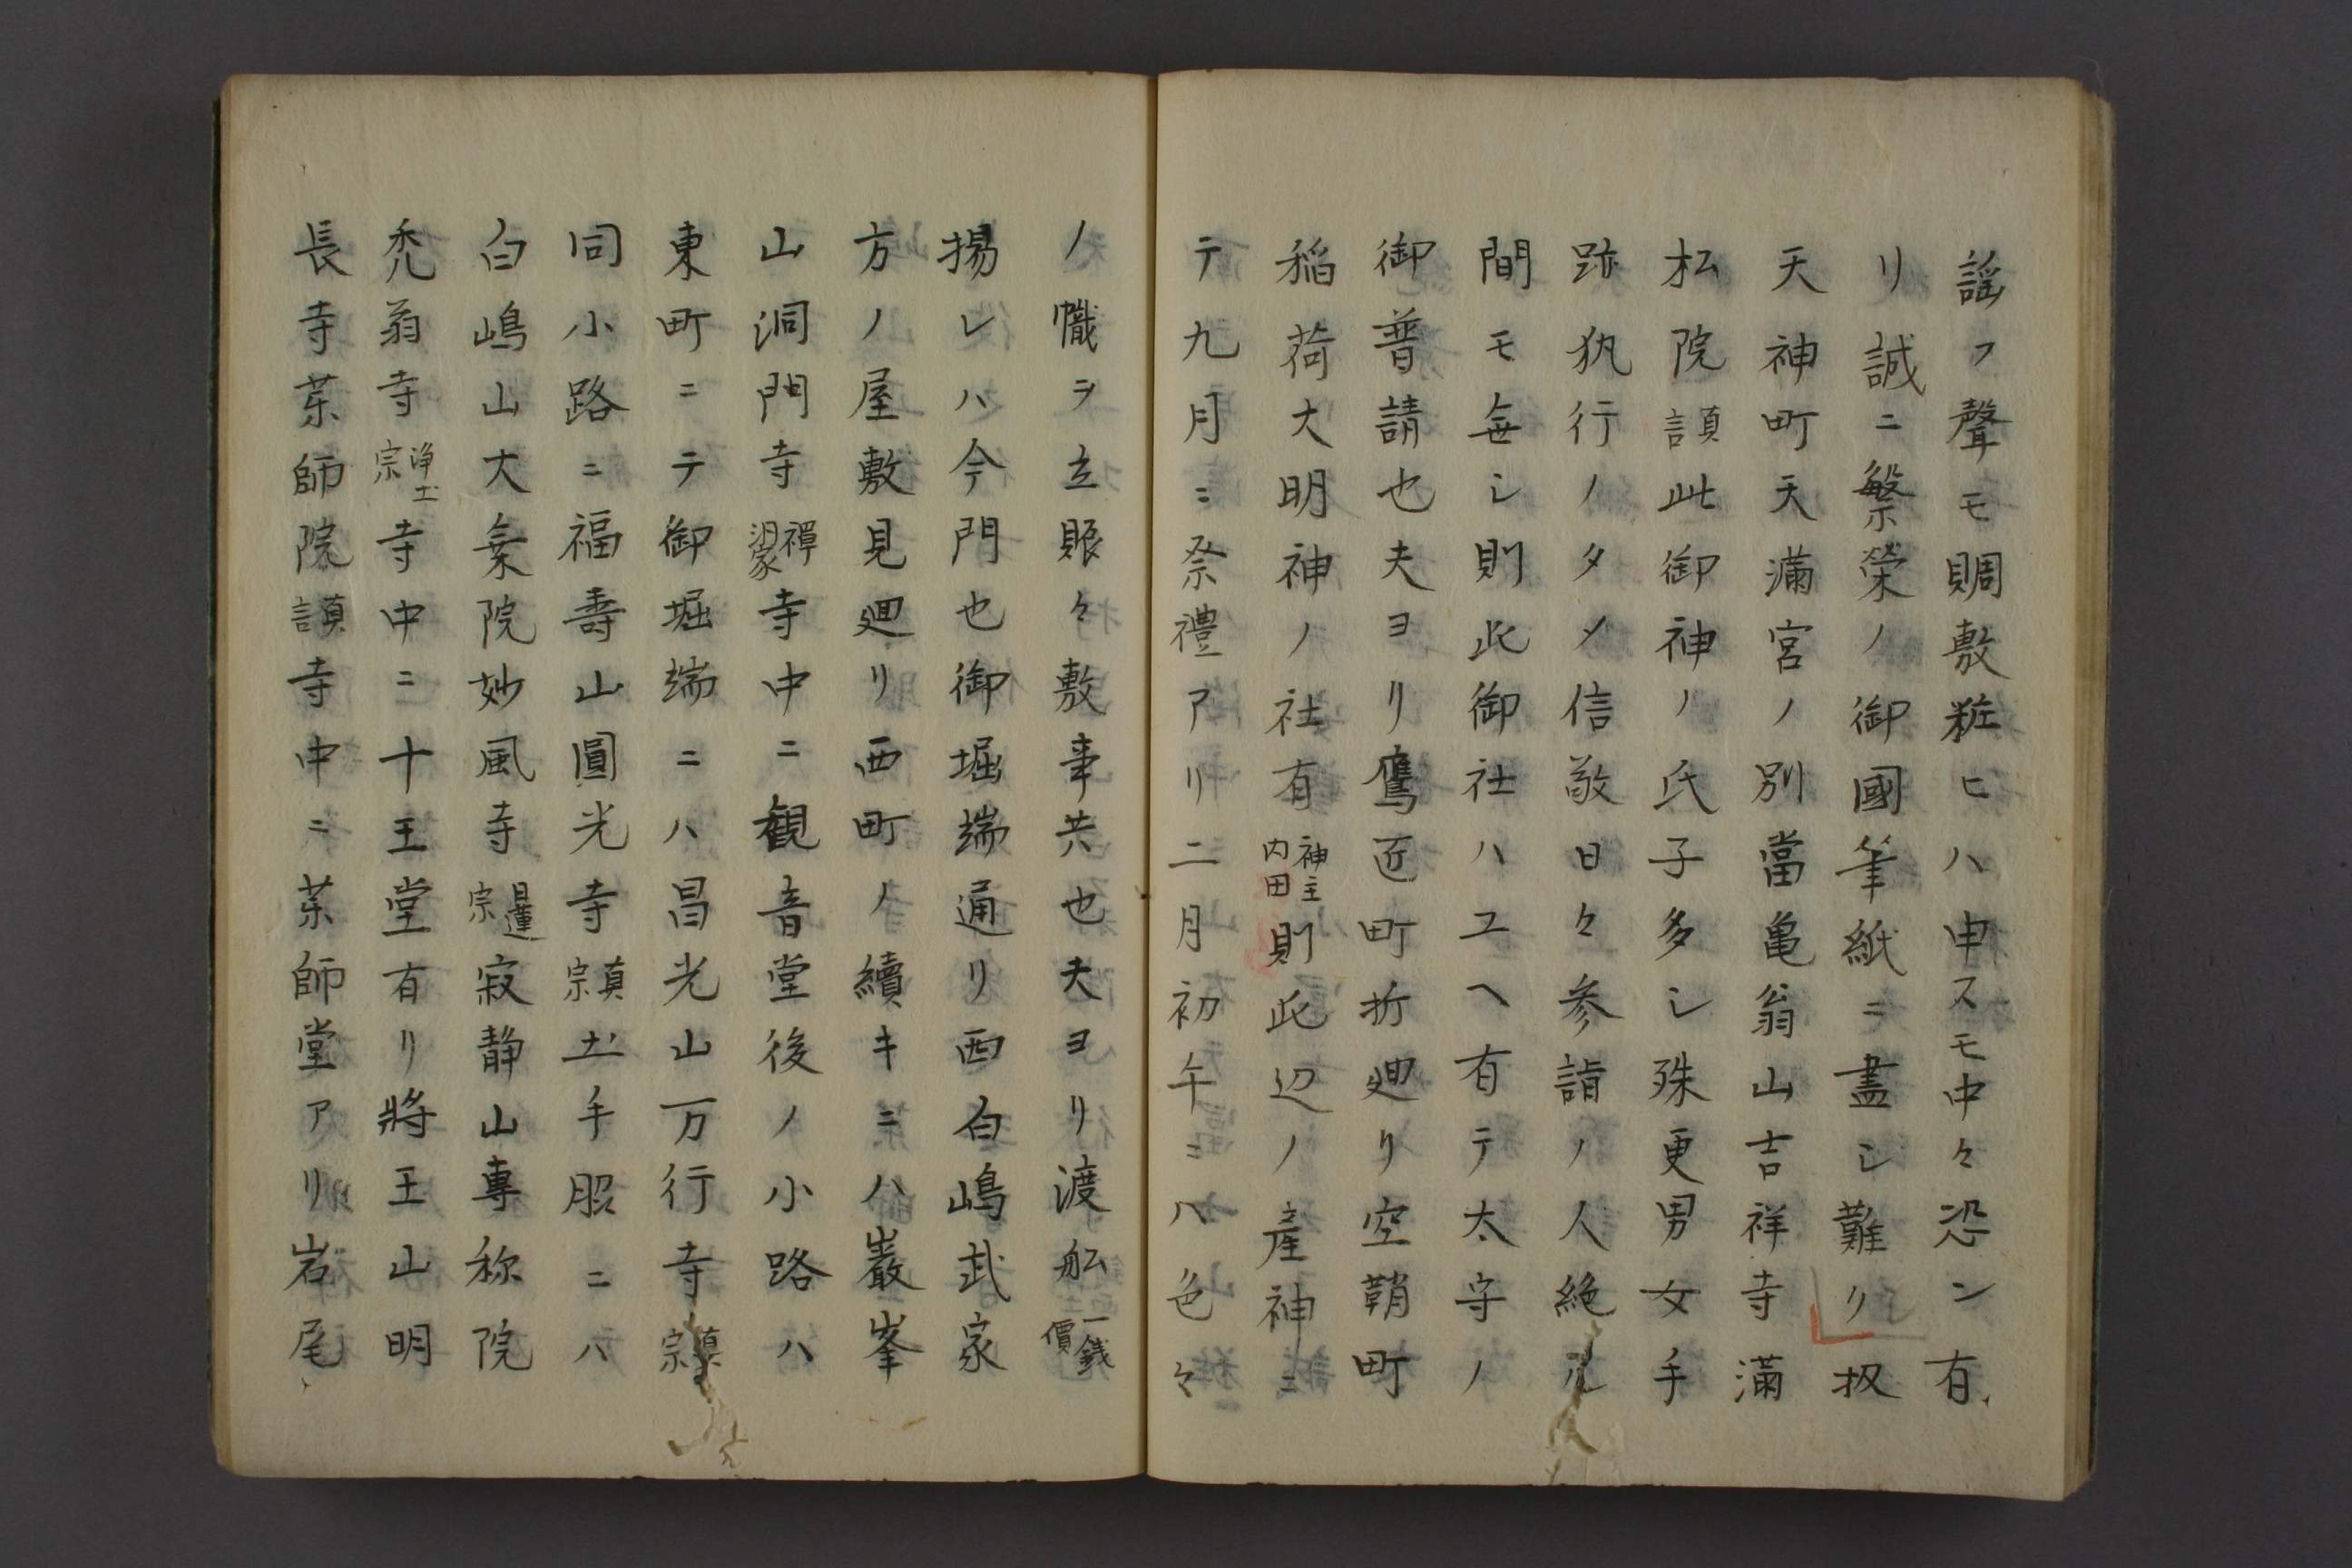 謡フ聲モ賙敷粧ヒハ申スモ中々恐ン有
リ誠ニ繁榮ノ御國筆紙ニ盡シ難リ扨
天神町天滿宮ノ別當亀翁山吉祥寺滿
松院真言此御神ノ氏子多シ殊更男女手
跡執行ノタメ信敬日々参詣ノ人絶ル
間モ無シ則此御社ハユヘ有テ太守ノ
御普請也夫ヨリ鷹匠町折廻リ空鞘町
稲荷大明神ノ社有神主内田則此辺ノ産神ニ
テ九月ニ祭禮アリ二月初午ニハ色々
ノ幟ヲ立賑々敷事共也夫ヨリ渡舩一銭價
揚レハ今門也御堀端通リ西白嶋武家
方ノ屋敷見廻リ西町ノ續キニハ巖峯
山洞門寺禪洞家寺中ニ観音堂後ノ小路ハ
東町ニテ御堀端ニハ昌光山万行寺真宗
同小路ニ福壽山圓光寺真宗土手服ニハ
白嶋山大乗院妙風寺日蓮宗寂静山專称院
禿翁寺浄土宗寺中ニ十王堂有リ將王山明
長寺薬師院真言寺中ニ薬師堂アリ岩尾